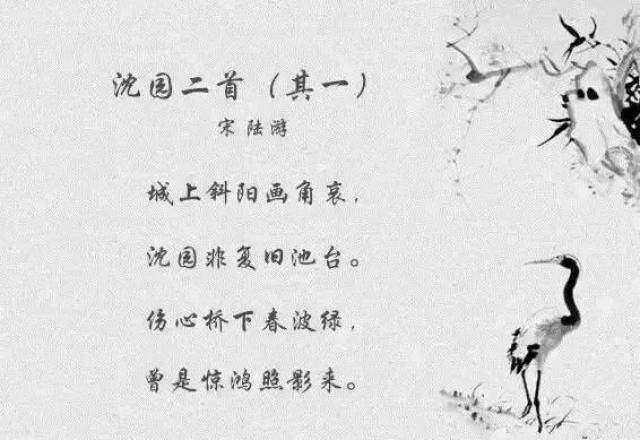 沈园二首（其一）
宋 陆游
城上斜阳画角哀，
沈园非复旧池台。
伤心桥下春波绿，
曾是惊鸿照影来。